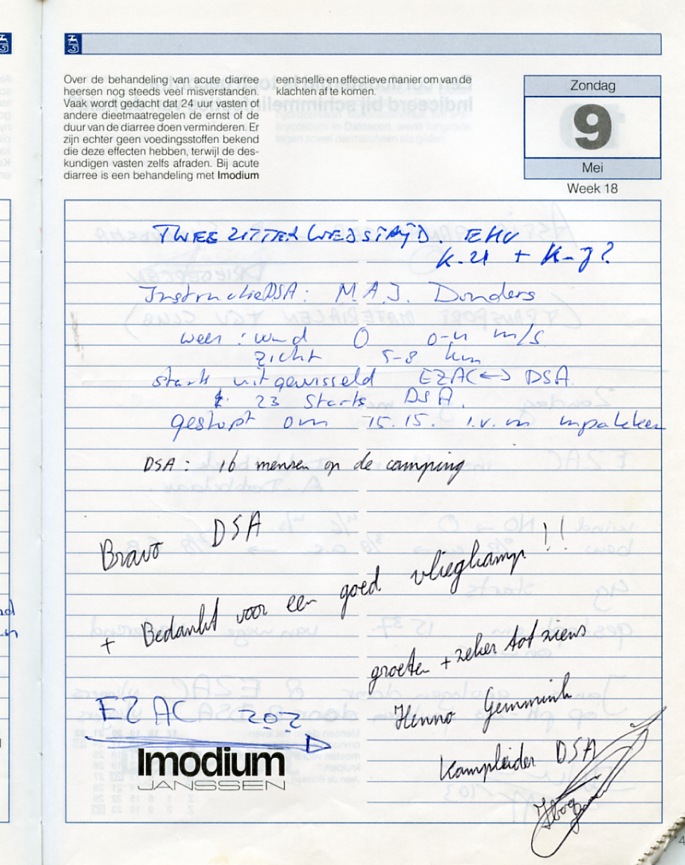 Over de behandeling van acute diarree
heersen nog steeds veel misverstanden.
Vaak wordt gedacht dat 24 uur vasten of
andere dieetmaatregelen de ernst of de
duur van de diarree doen verminderen. Er
zijn echter geen voedingsstoffen bekend
die deze effecten hebben, terwijl de des-
kundigen vasten zelfs afraden. Bij acute
diarree is een behandeling met Imodium
een snelle en effectieve manier om van de
klachten af te komen.
Zondag
9
Mei
Week 18
TWEEZITTER WEDSTRIJD. EHV
K.21 + K-7?
Instructie DSA: M.A.J. Donders
weer: wind O 0-4 m/s
zicht 5-8 km
start uitgewisseld EZAC <-> DSA
23 starts DSA.
gestopt om 15.15. i.v.m inpakken
DSA: 16 mensen op de camping
Bravo DSA
+ Bedankt voor een goed vliegkamp!!
groeten + zeker tot ziens
Henno Gemmink
Kampleider DSA
EZAC 202
Imodium
JANSSEN